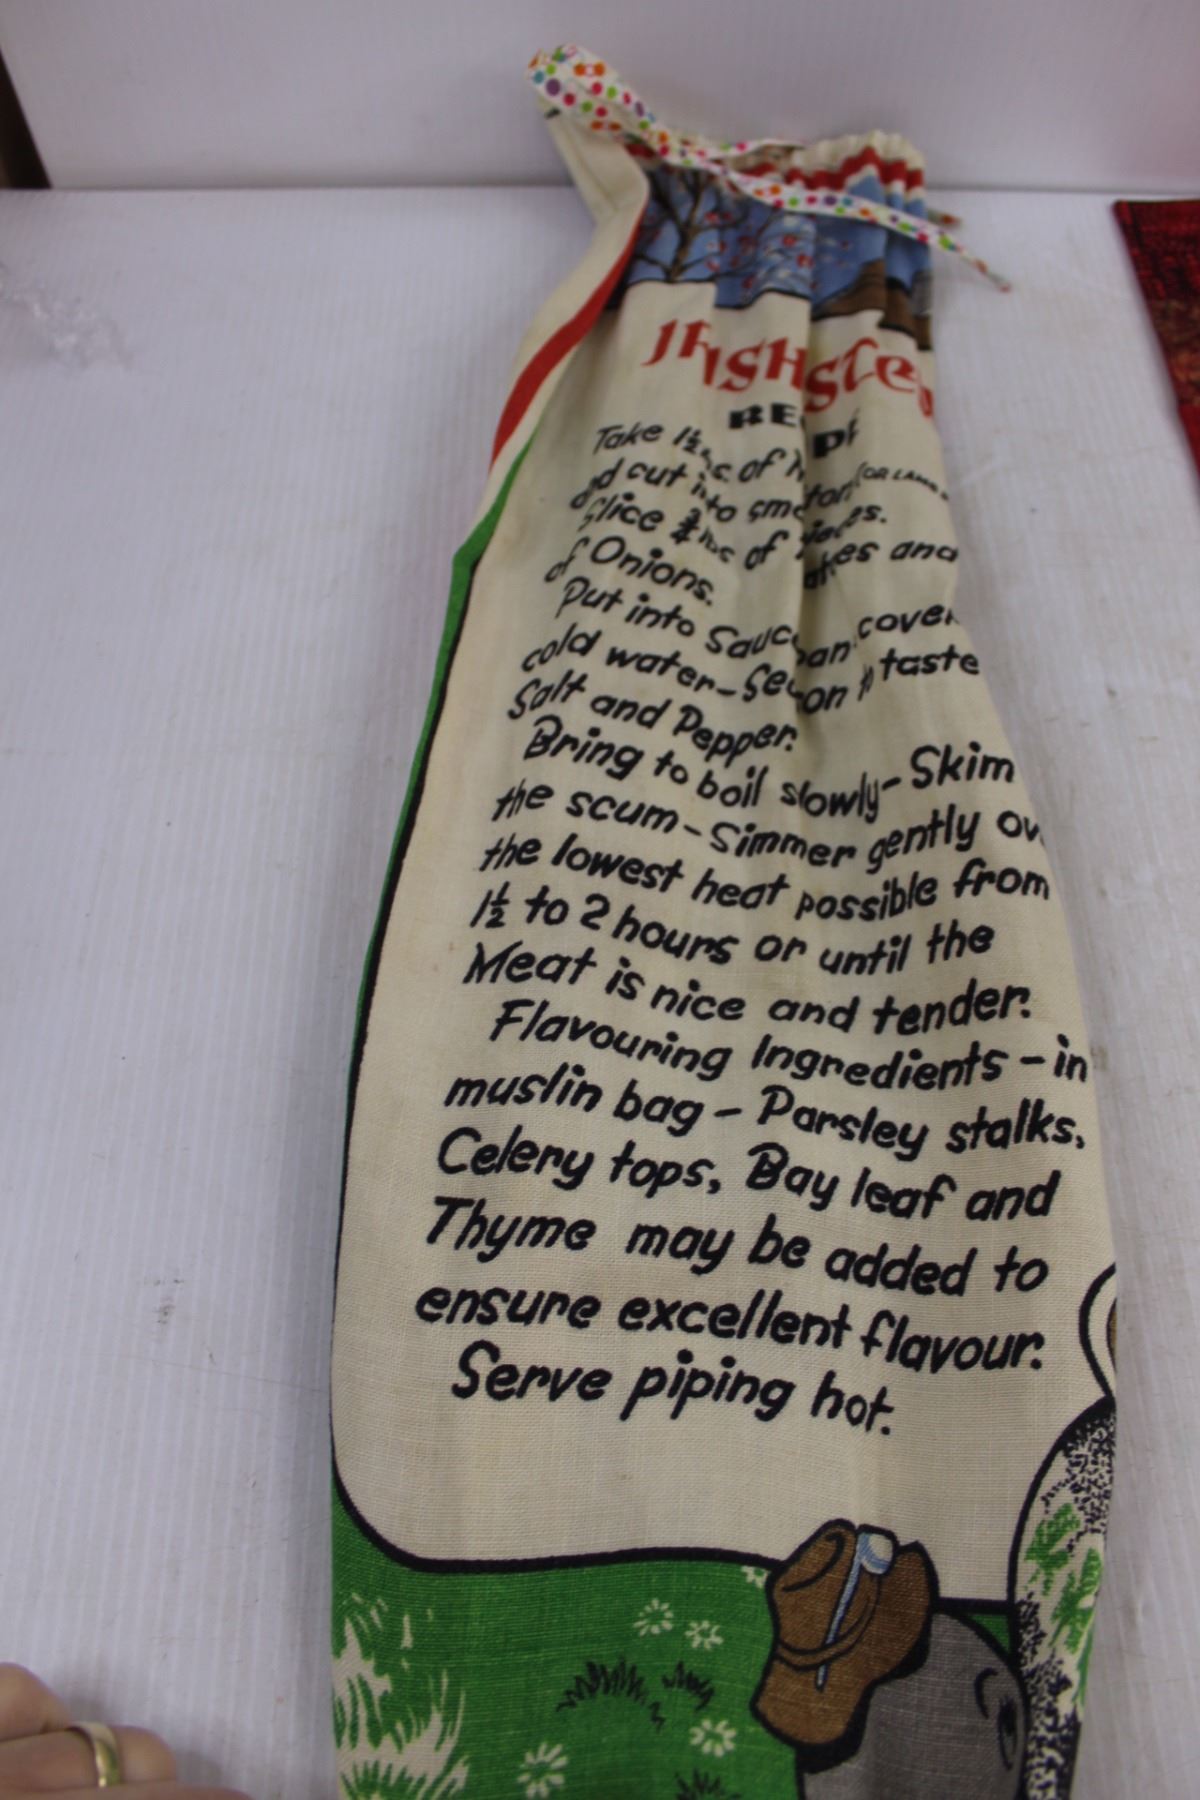 IRISH STEW
RECIPE
Take 1½ of
and cut into (OR LAMB
Slice ¾ lbs of pieces.
of Onions. and
Put into Saucepan, cover
cold water – Season to taste
Salt and Pepper.
Bring to boil slowly – Skim
the scum – Simmer gently ov
the lowest heat possible from
1½ to 2 hours or until the
Meat is nice and tender.
Flavouring Ingredients – in
muslin bag – Parsley stalks,
Celery tops, Bay leaf and
Thyme may be added to
ensure excellent flavour.
Serve piping hot.